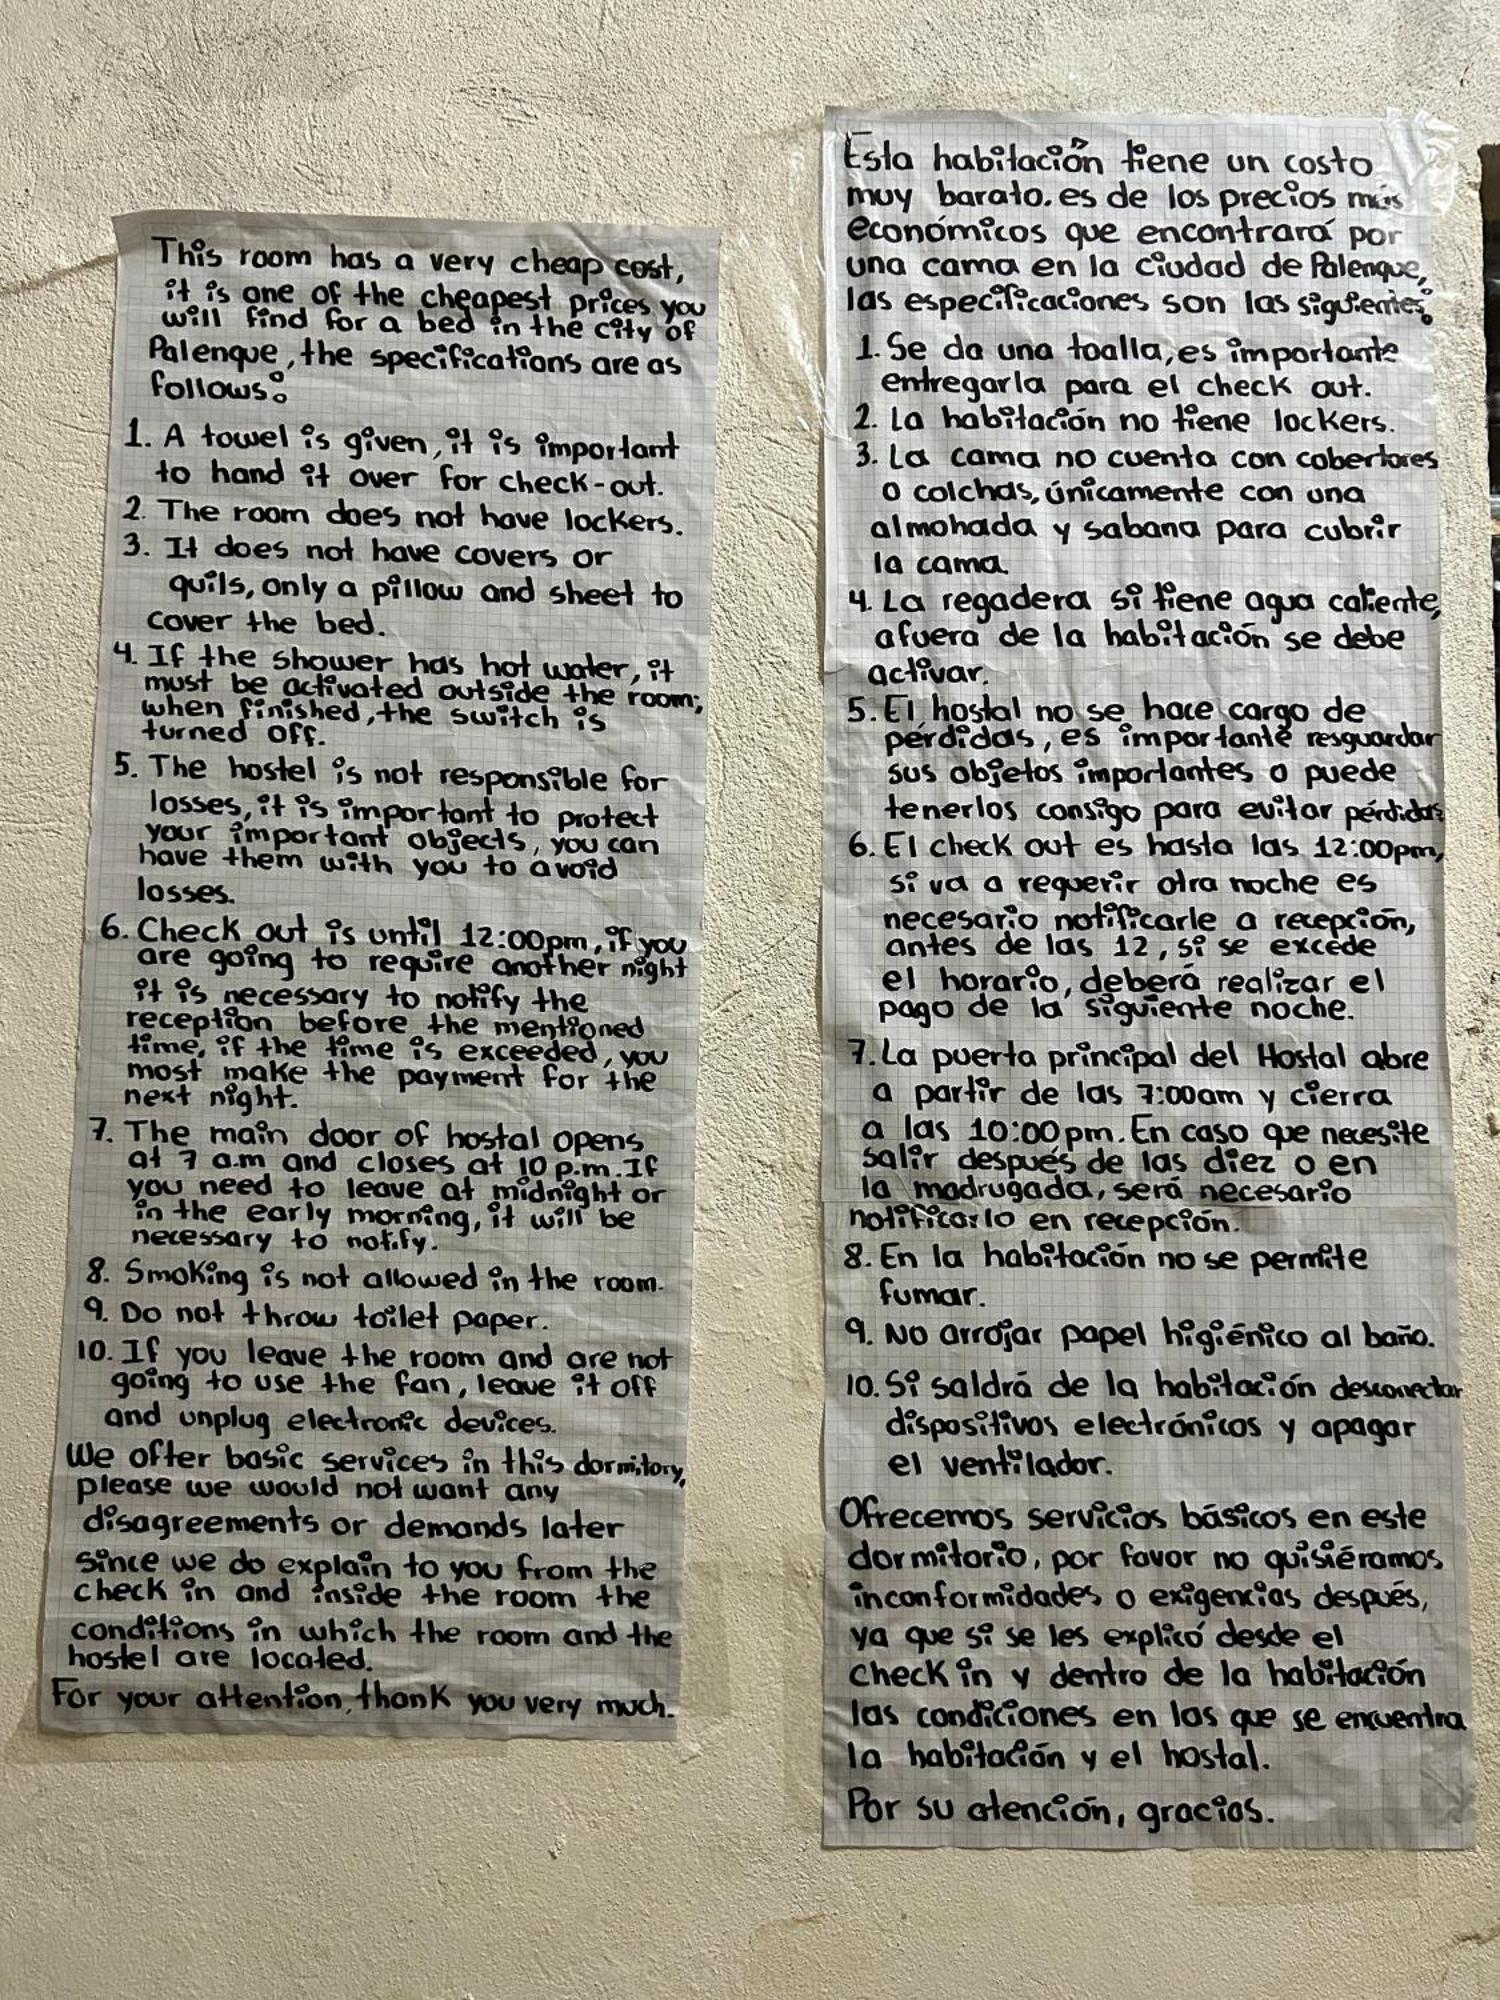 This room has a very cheap cost,
it is one of the cheapest prices you
will find for a bed in the city of
Palenque, the specifications are as
follows:
1. A towel is given, it is important
to hand it over for check-out.
2. The room does not have lockers.
3. It does not have covers or
quils, only a pillow and sheet to
cover the bed.
4. If the shower has hot water, it
must be activated outside the room;
when finished, the switch is
turned off.
5. The hostel is not responsible for
losses, it is important to protect
your important objects, you can
have them with you to avoid
losses.
6. Check out is until 12:00pm, if you
are going to require another night
it is necessary to notify the
reception before the mentioned
time, if the time is exceeded, you
most make the payment for the
next night.
7. The main door of hostal opens
at 7 a.m and closes at 10 p.m. If
you need to leave at midnight or
in the early morning, it will be
necessary to notify.
8. Smoking is not allowed in the room.
9. Do not throw toilet paper.
10. If you leave the room and are not
going to use the fan, leave it off
and unplug electronic devices.
We offer basic services in this dormitory,
please we would not want any
disagreements or demands later
since we do explain to you from the
check in and inside the room the
conditions in which the room and the
hostel are located.
For your attention, thank you very much.
Esta habitación tiene un costo
muy barato. es de los precios más
económicos que encontrará por
una cama en la ciudad de Palenque,
las especificaciones son las siguientes:
1. Se da una toalla, es importante
entregarla para el check out.
2. La habitación no tiene lockers.
3. La cama no cuenta con cobertores
o colchas, únicamente con una
almohada y sabana para cubrir
la cama.
4. La regadera si tiene agua caliente,
afuera de la habitación se debe
activar.
5. El hostal no se hace cargo de
pérdidas, es importante resguardar
sus objetos importantes o puede
tenerlos consigo para evitar pérdidas
6. El check out es hasta las 12:00pm,
si va a requerir otra noche es
necesario notificarle a recepción,
antes de las 12, si se excede
el horario, deberá realizar el
pago de la siguiente noche.
7. La puerta principal del Hostal abre
a partir de las 7:00am y cierra
a las 10:00pm. En caso que necesite
salir después de las diez o en
la madrugada, será necesario
notificarlo en recepción.
8. En la habitación no se permite
fumar.
9. No arrojar papel higiénico al baño.
10. Si saldrá de la habitación desconectar
dispositivos electrónicos y apagar
el ventilador.
Ofrecemos servicios básicos en este
dormitorio, por favor no quisiéramos
inconformidades o exigencias después,
ya que si se les explicó desde el
check in y dentro de la habitación
las condiciones en las que se encuentra
la habitación y el hostal.
Por su atención, gracias.